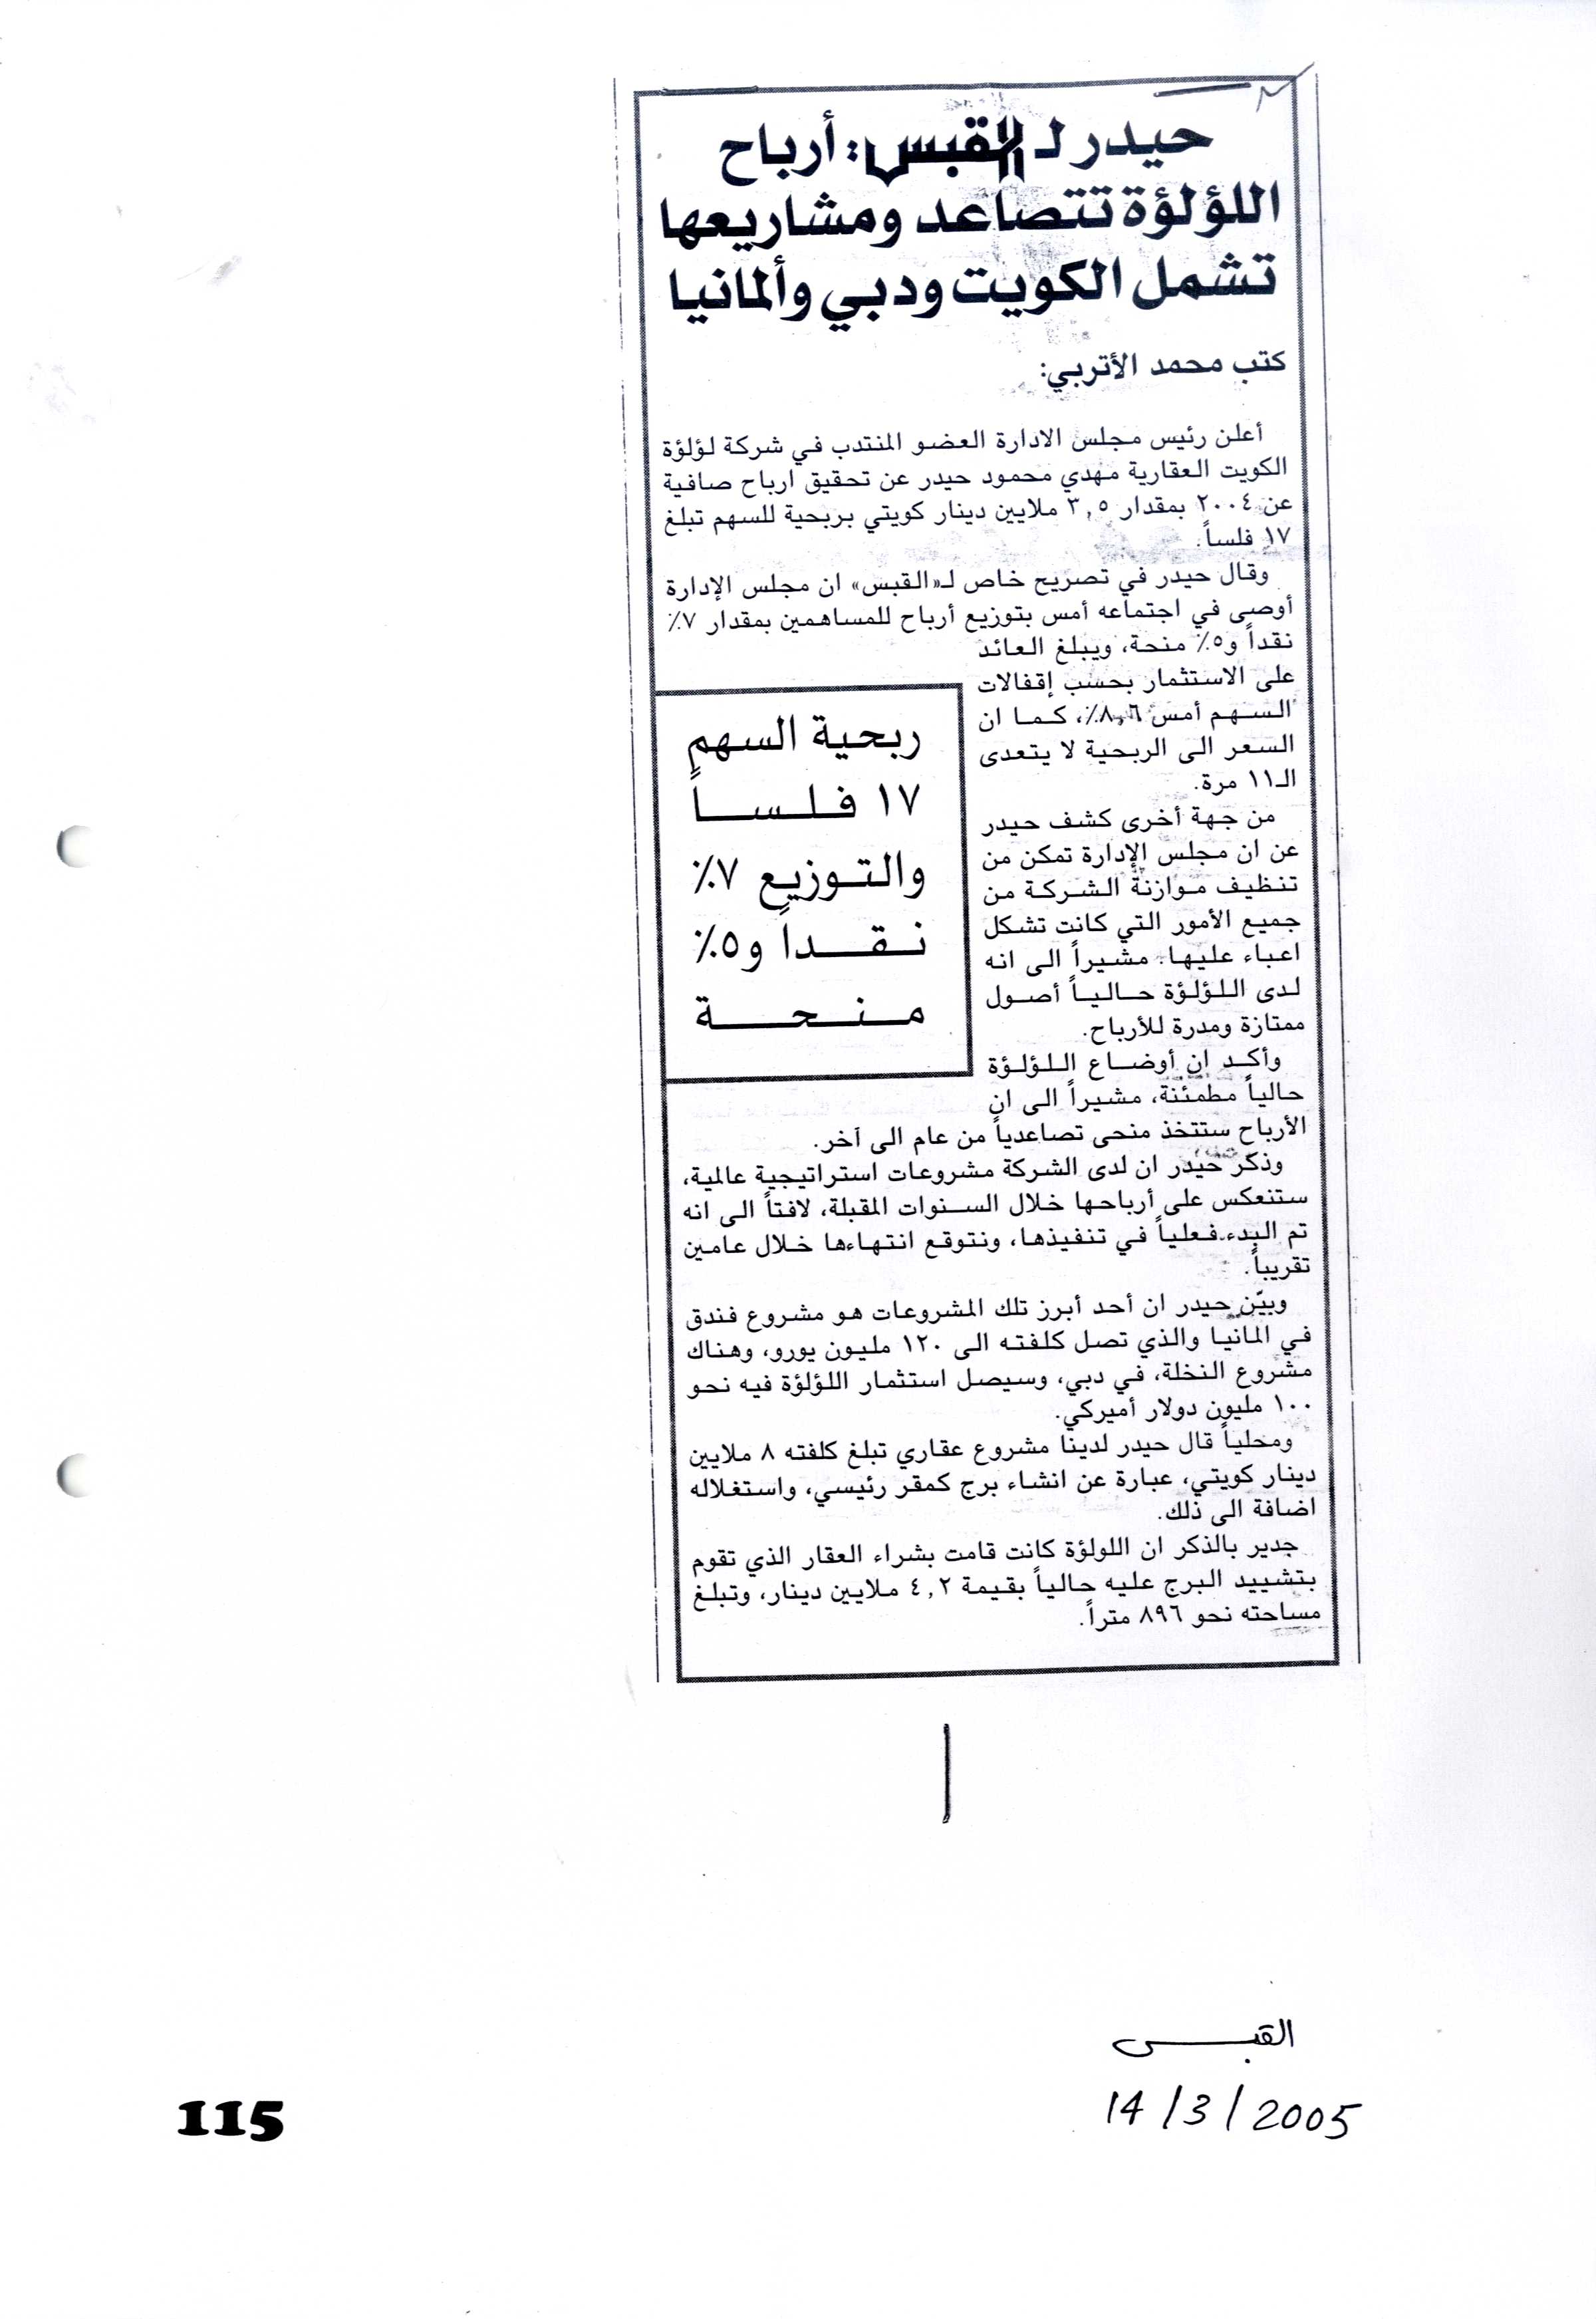 حيدر لـ القبس: أرباح
اللؤلؤة تتصاعد ومشاريعها
تشمل الكويت ودبي وألمانيا
كتب محمد الأتربي:
أعلن رئيس مجلس الادارة العضو المنتدب في شركة لؤلؤة
الكويت العقارية مهدي محمود حيدر عن تحقيق ارباح صافية
عن ٢٠٠٤ بمقدار ٣,٥ ملايين دينار كويتي بربحية للسهم تبلغ
١٧ فلساً.
وقال حيدر في تصريح خاص لـ«القبس» ان مجلس الإدارة
أوصى في اجتماعه أمس بتوزيع أرباح للمساهمين بمقدار ٧٪
نقداً و٥٪ منحة، ويبلغ العائد
على الاستثمار بحسب إقفالات
السهم أمس ٨,٦٪، كما ان
السعر الى الربحية لا يتعدى
الـ١١ مرة.
من جهة أخرى كشف حيدر
عن ان مجلس الإدارة تمكن من
تنظيف موازنة الشركة من
جميع الأمور التي كانت تشكل
اعباء عليها، مشيراً الى انه
لدى اللؤلؤة حالياً أصول
ممتازة ومدرة للأرباح.
وأكد ان أوضاع اللؤلؤة
حالياً مطمئنة، مشيراً الى ان
الأرباح ستتخذ منحى تصاعدياً من عام الى آخر.
وذكر حيدر ان لدى الشركة مشروعات استراتيجية عالمية،
ستنعكس على أرباحها خلال السنوات المقبلة، لافتاً الى انه
تم البدء فعلياً في تنفيذها، ونتوقع انتهاءها خلال عامين
تقريباً.
وبيّن حيدر ان أحد أبرز تلك المشروعات هو مشروع فندق
في المانيا والذي تصل كلفته الى ١٢٠ مليون يورو، وهناك
مشروع النخلة، في دبي، وسيصل استثمار اللؤلؤة فيه نحو
١٠٠ مليون دولار أميركي.
ومحلياً قال حيدر لدينا مشروع عقاري تبلغ كلفته ٨ ملايين
دينار كويتي، عبارة عن انشاء برج كمقر رئيسي، واستغلاله
اضافة الى ذلك.
جدير بالذكر ان اللولؤة كانت قامت بشراء العقار الذي تقوم
بتشييد البرج عليه حالياً بقيمة ٤,٢ ملايين دينار، وتبلغ
مساحته نحو ٨٩٦ متراً.
ربحية السهم
١٧ فلساً
والتوزيع ٧٪
نقداً و٥٪
منحة
القبس
14/3/2005
115